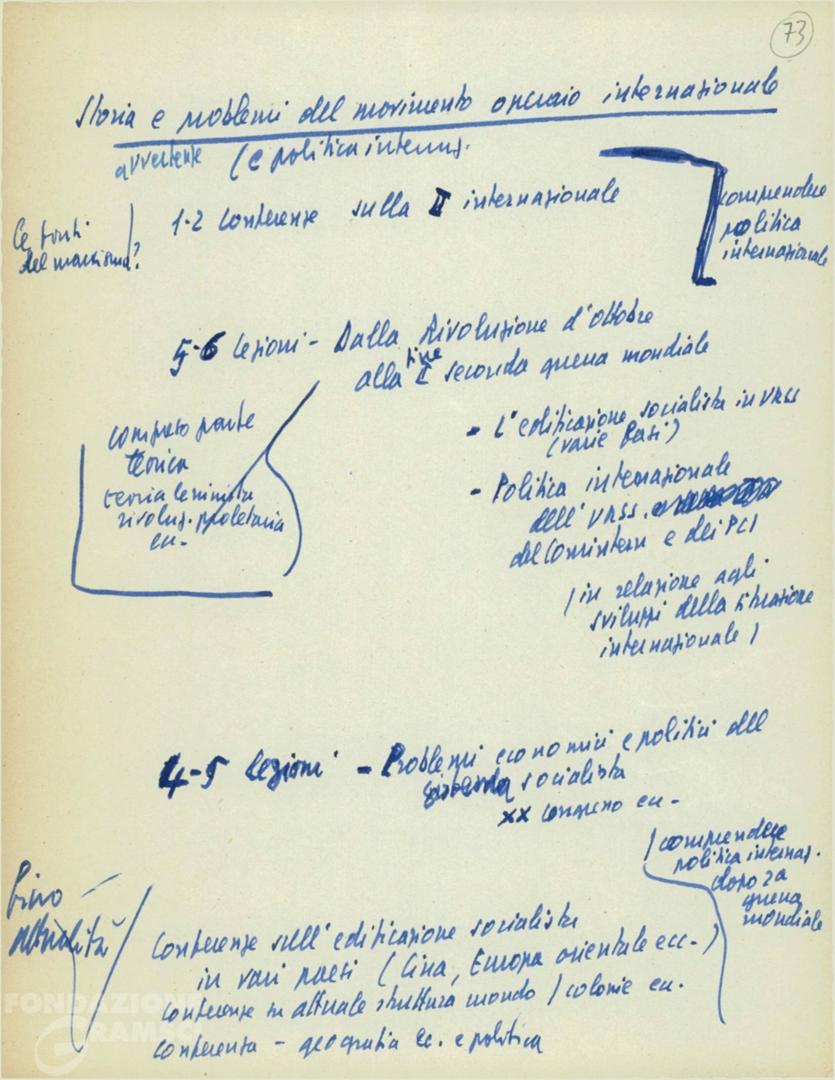 73
Storia e problemi del movimento operaio internazionale
avvertenze (e politica internaz.
Le fonti
del marxismo?
1-2 Conferenze sulla II internazionale
comprendere
politica
internazionale
5-6 lezioni - Dalla Rivoluzione d'ottobre
alla fine seconda guerra mondiale
compreso parte
teorica
teoria leninista
rivoluz. proletaria
ecc.
- L'edificazione socialista in URSS
(varie fasi)
- Politica internazionale
dell'URSS
del Comintern e dei PCI
(in relazione agli
sviluppi della situazione
internazionale)
4-5 lezioni - Problemi economici e politici del
sistema socialista
XX congresso ecc.
(comprendere
politica internaz.
dopo 2a
guerra
mondiale
Fino
attualità
Conferenze sull'edificazione socialista
in vari paesi (Cina, Europa orientale ecc.)
Conferenze su attuale struttura mondo / colonie ecc.
Conferenza - geografia ec. e politica
FONDAZIONE
GRAMSCI